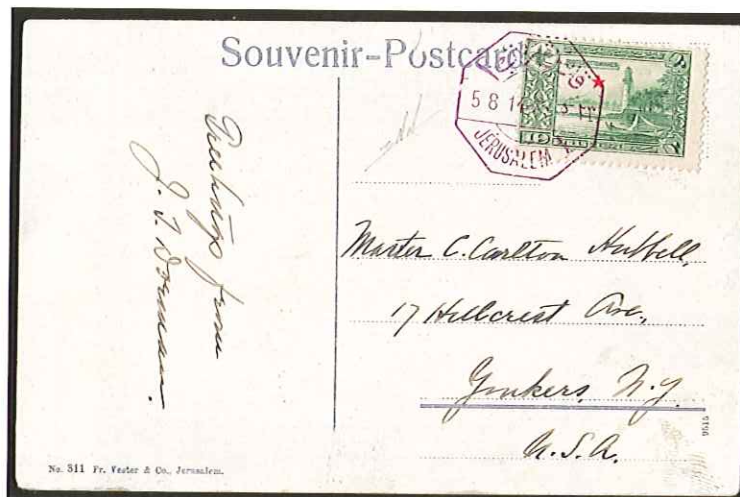 Souvenir-Postcard
5 8 14
JERUSALEM
Greetings from
J. T. Dorman.
Master C. Carlton Hubbell,
17 Hillcrest Ave.,
Yonkers, N.Y.
U.S.A.
9515
No. 311 Fr. Vester & Co., Jerusalem.